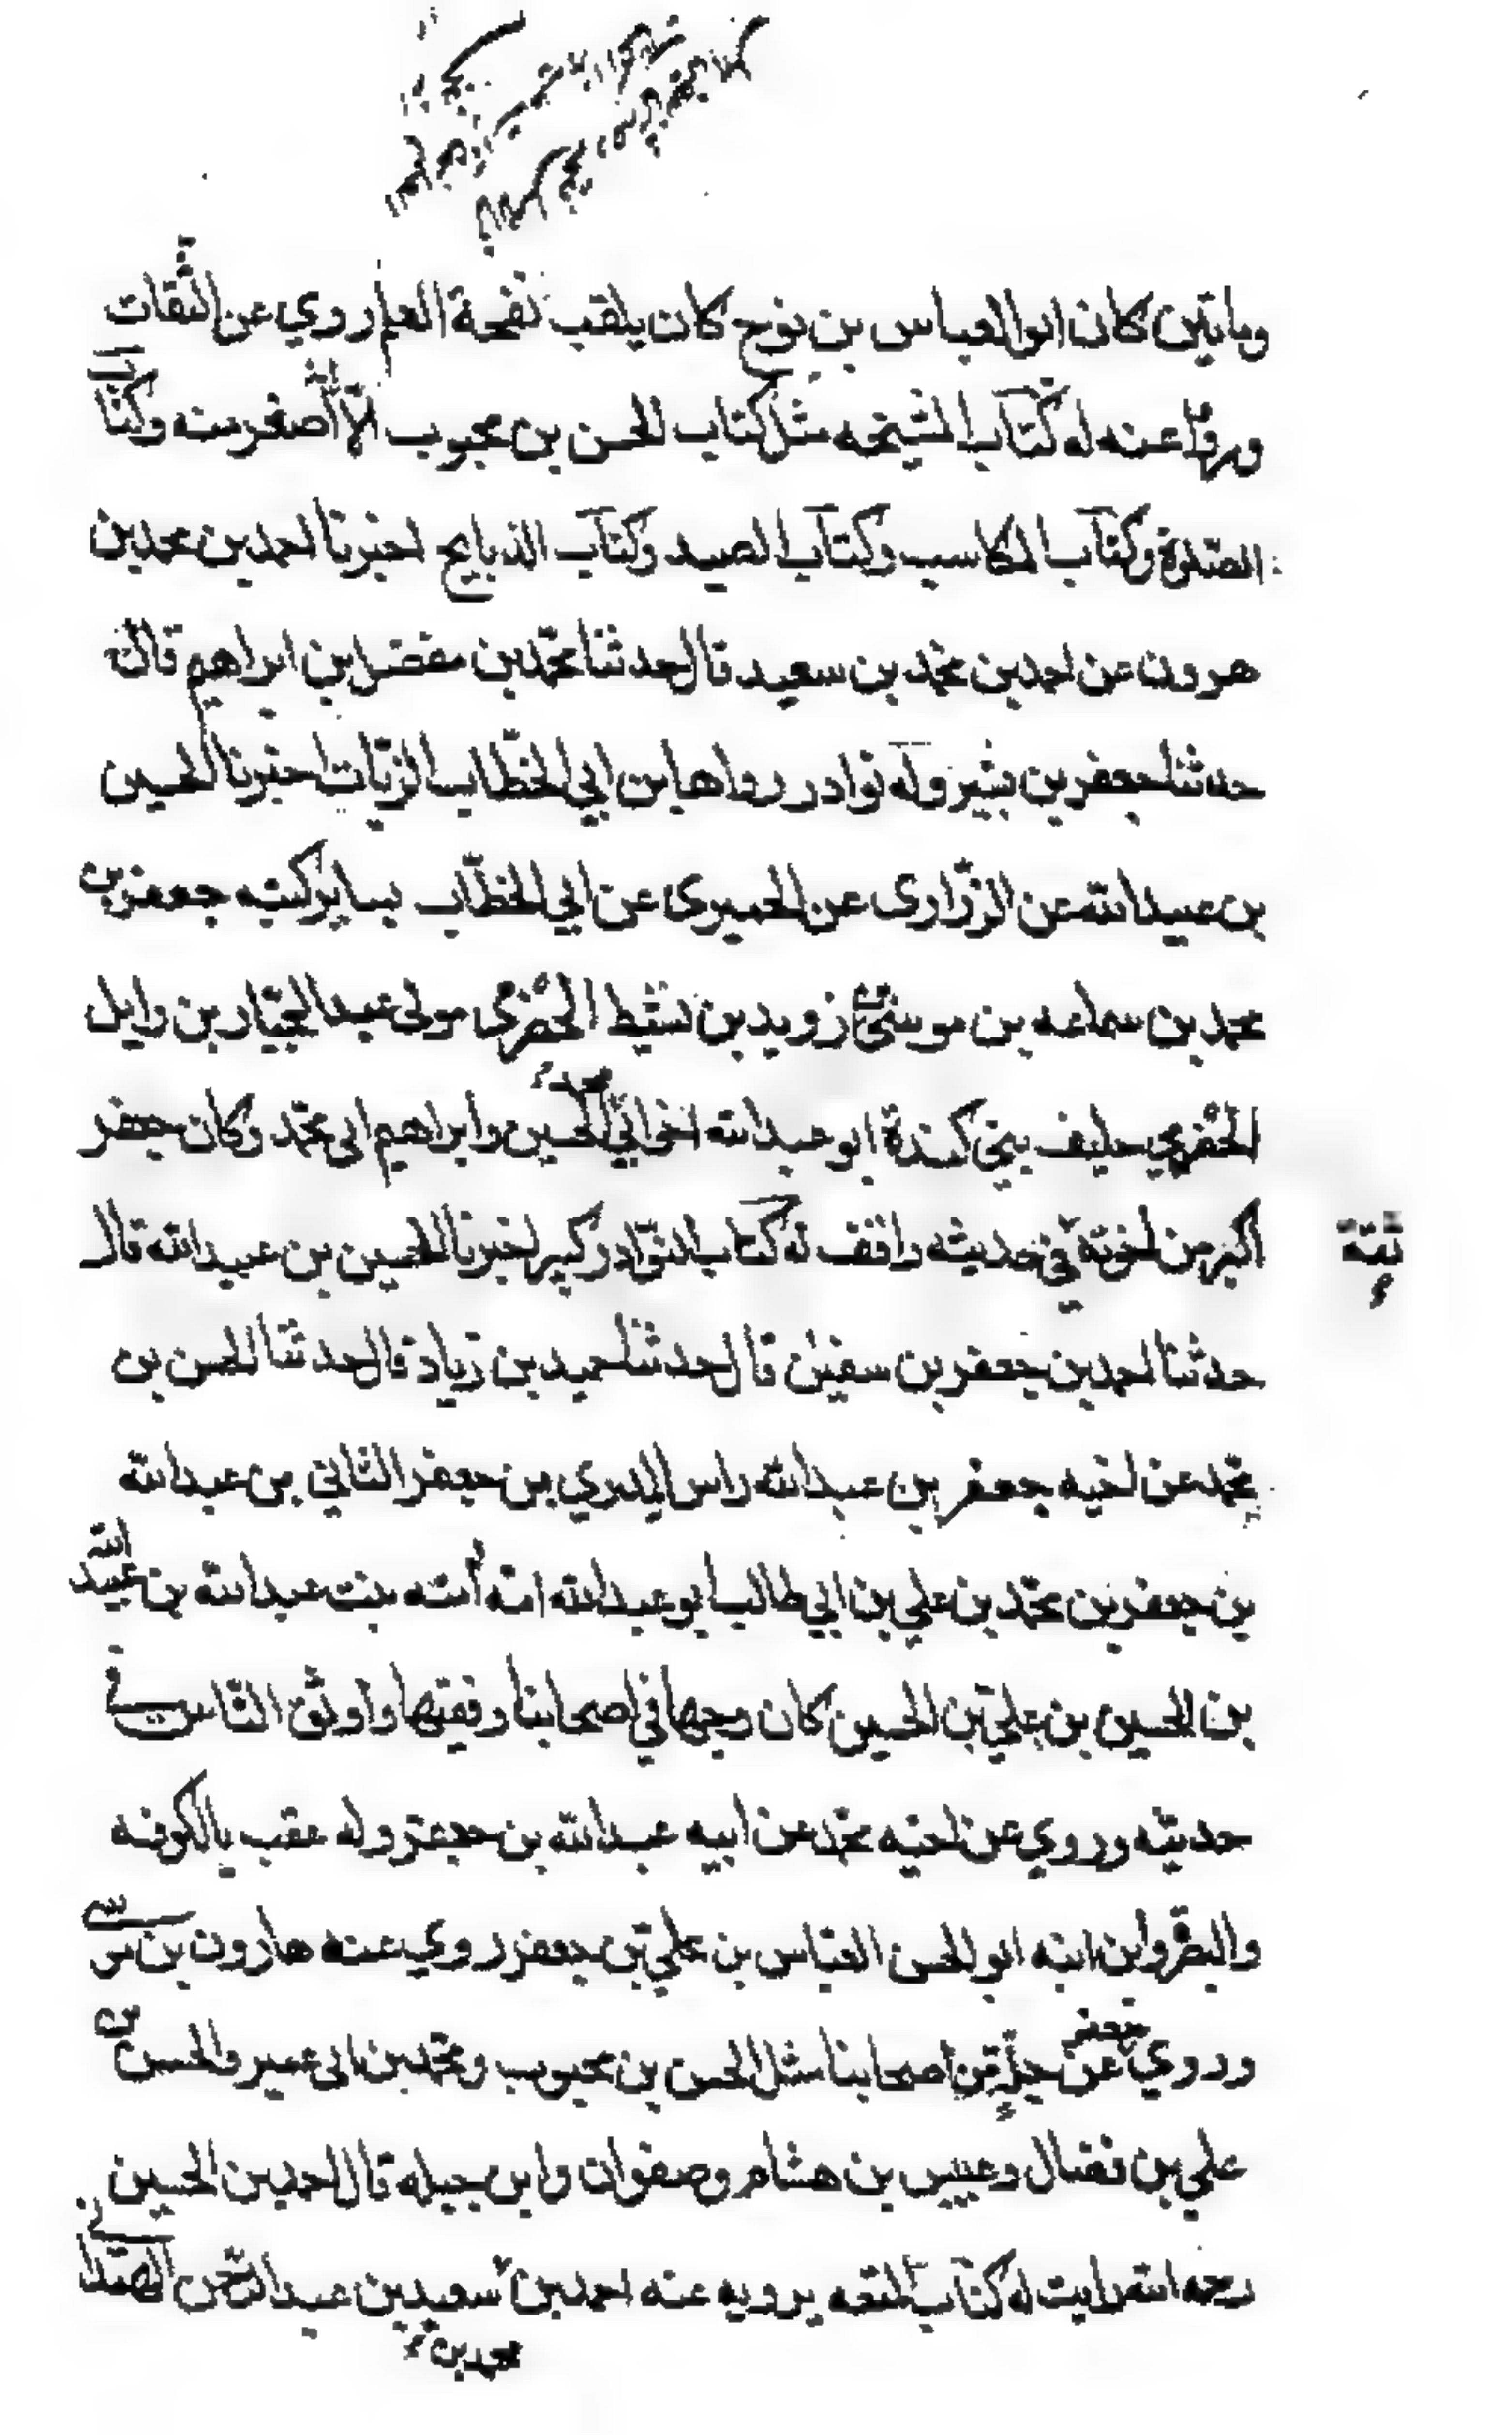 ومايتين كان ابو العباس بن نوح كان يلقب نفحة العلم روي عن الثقات
ورووا عنه له كتاب المشيخه مثل كتاب الحسن بن محبوب الا انه اصغر منه وكتاب
الصلوة وكتاب المكاسب وكتاب الصيد وكتاب الذبايح اخبرنا احمد بن محمد بن
هرون عن احمد بن محمد بن سعيد قال حدثنا محمد بن مفضل بن ابراهيم قال
حدثنا جعفر بن بشير وله نوادر رواها ابن ابي الخطاب الزيات اخبرنا الحسين
بن عبيد الله عن الزراري عن الحميري عن ابي الخطاب بساير كتبه جعفر بن
محمد بن سماعه بن موسى بن زويد بن نشيط الحضرمي مولى عبد الجبار بن وايل
الحضرمي حليف بني كندة ابو عبد الله اخو ابي محمد الحسن وابراهيم ابي محمد وكان جعفر
اكبر من اخوته ثقة في حديثه واقف له كتاب النوادر كبير اخبرنا الحسين بن عبيد الله قال
حدثنا احمد بن جعفر بن سفين قال حدثنا حميد بن زياد قال حدثنا الحسن بن
محمد عن اخيه جعفر بن عبد الله راس المدري بن جعفر الثاني بن عبد الله
بن جعفر بن محمد بن علي بن ابي طالب ابو عبد الله امه آمنه بنت عبد الله بن عبيد الله
بن الحسين بن علي بن الحسين كان وجها في اصحابنا وفقيها واوثق الناس في
حديثه وروي عن اخيه محمد عن ابيه عبد الله بن جعفر وله عقب بالكوفه
والبصرة وابن ابنه ابو الحسن العباس بن علي بن جعفر روي عنه هارون بن موسى
وروي جعفر عن جلة من اصحابنا مثل الحسن بن محبوب ومحمد بن ابي عمير والحسن بن
علي بن فضال وعبيس بن هشام وصفوان وابن جبله قال احمد بن الحسين
رحمه الله رايت له كتاب المتعه يرويه عنه احمد بن محمد بن سعيد بن عبد الرحمن الهمداني